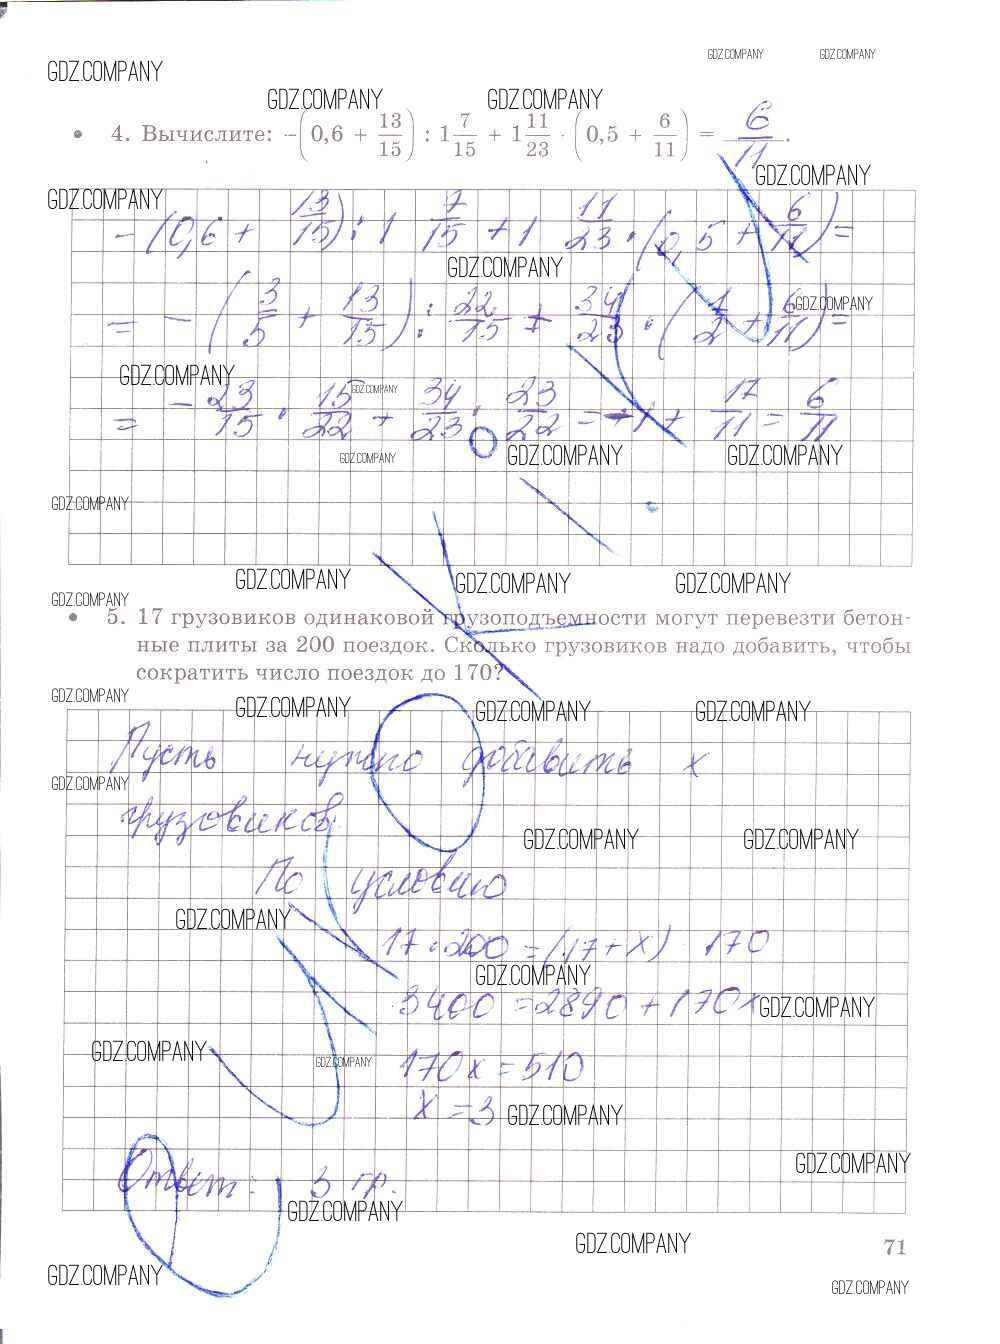 GDZ.COMPANY GDZ.COMPANY
GDZ.COMPANY
GDZ.COMPANY GDZ.COMPANY
4. Вычислите: -(0,6 + 13/15) : 1 7/15 + 1 11/23 · (0,5 + 6/11) = 6/11.
GDZ.COMPANY
GDZ.COMPANY
-(0,6 + 13/15) : 1 7/15 + 1 11/23 · (0,5 + 6/11) =
GDZ.COMPANY
GDZ.COMPANY
= -(3/5 + 13/15) : 22/15 + 34/23 · (1/2 + 6/11) =
GDZ.COMPANY
GDZ.COMPANY
= -23/15 · 15/22 + 34/23 · 23/22 = -1 + 17/11 = 6/11
GDZ.COMPANY GDZ.COMPANY GDZ.COMPANY
GDZ.COMPANY
GDZ.COMPANY GDZ.COMPANY GDZ.COMPANY
GDZ.COMPANY
5. 17 грузовиков одинаковой грузоподъемности могут перевезти бетон-
ные плиты за 200 поездок. Сколько грузовиков надо добавить, чтобы
сократить число поездок до 170?
GDZ.COMPANY
GDZ.COMPANY GDZ.COMPANY GDZ.COMPANY
Пусть нужно добавить x
GDZ.COMPANY
грузовиков.
GDZ.COMPANY GDZ.COMPANY
По условию
GDZ.COMPANY
17 · 200 = (17 + x) 170
GDZ.COMPANY
3400 = 2890 + 170x
GDZ.COMPANY
GDZ.COMPANY
GDZ.COMPANY
170x = 510
x = 3
GDZ.COMPANY
GDZ.COMPANY
Ответ: 3 гр.
GDZ.COMPANY
GDZ.COMPANY
71
GDZ.COMPANY
GDZ.COMPANY